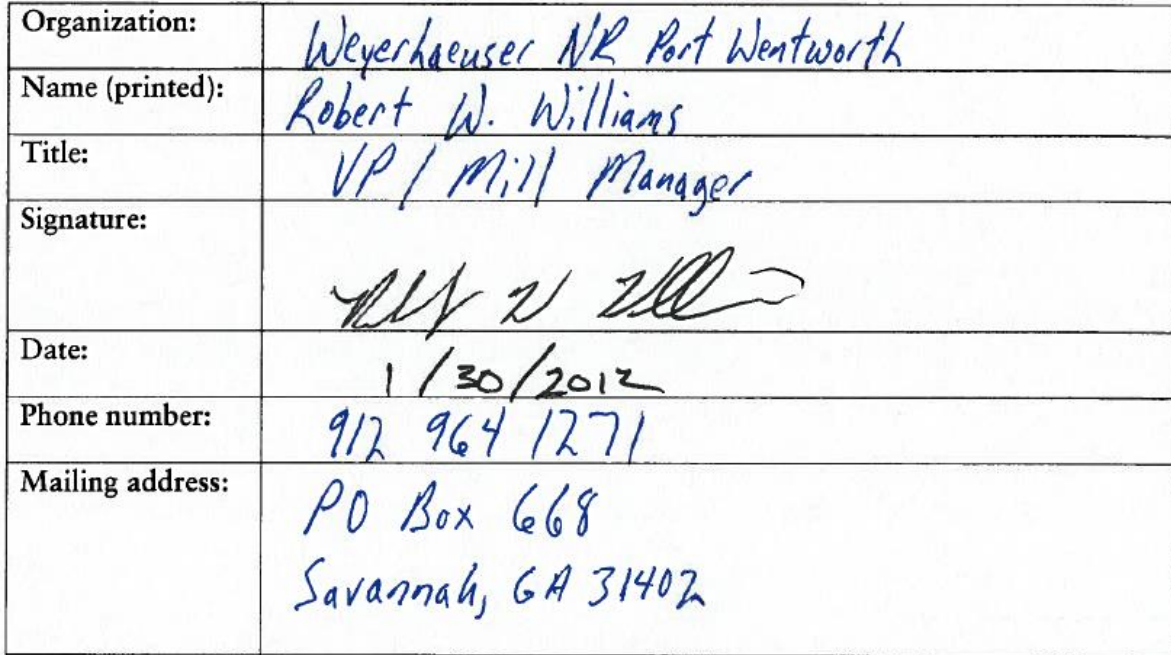 Organization: Weyerhaeuser NR Port Wentworth
Name (printed): Robert W. Williams
Title: VP / Mill Manager
Signature:
Date: 1/30/2012
Phone number: 912 964 1271
Mailing address: PO Box 668
Savannah, GA 31402